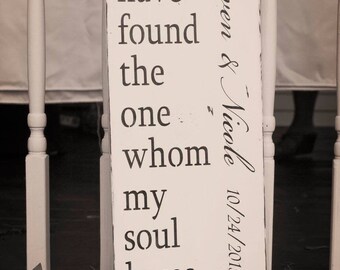 have
found
the
one
whom
my
soul
loves
& Nicole 10/24/201